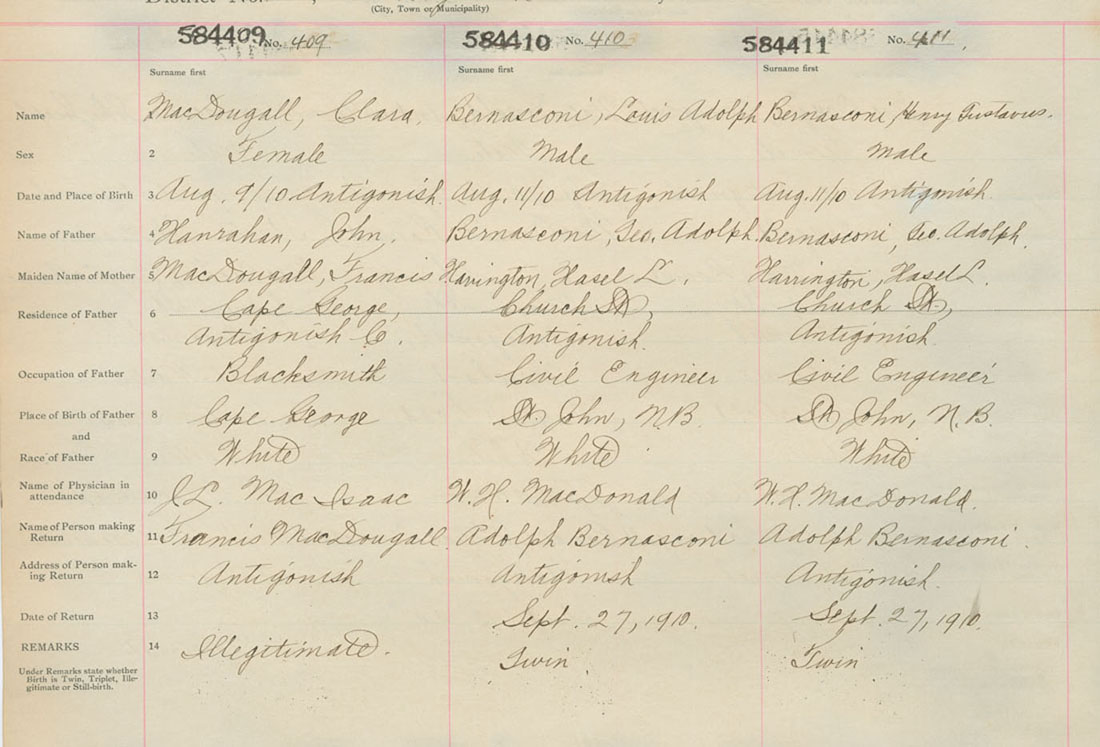 District No.
(City, Town or Municipality)
584409 No. 409 584410 No. 410 584411 No. 411
Surname first Surname first Surname first
Name MacDougall, Clara. Bernasconi, Louis Adolph Bernasconi, Henry Gustavus.
Sex 2 Female Male Male
Date and Place of Birth 3 Aug. 9/10 Antigonish. Aug. 11/10 Antigonish Aug. 11/10 Antigonish.
Name of Father 4 Hanrahan, John. Bernasconi, Geo. Adolph. Bernasconi, Geo. Adolph.
Maiden Name of Mother 5 MacDougall, Francis Harrington, Hasel L. Harrington, Hasel L.
Residence of Father 6 Cape George, Church St, Church St,
Antigonish Co. Antigonish. Antigonish.
Occupation of Father 7 Blacksmith Civil Engineer Civil Engineer
Place of Birth of Father 8 Cape George St John, N.B. St John, N.B.
and
Race of Father 9 White White White
Name of Physician in
attendance 10 J.L. MacIsaac W. H. MacDonald W. H. MacDonald.
Name of Person making
Return 11 Francis MacDougall. Adolph Bernasconi Adolph Bernasconi.
Address of Person mak-
ing Return 12 Antigonish Antigonish Antigonish.
Date of Return 13 Sept. 27, 1910. Sept. 27, 1910.
REMARKS 14 Illegitimate. Twin Twin
Under Remarks state whether
Birth is Twin, Triplet, Ille-
gitimate or Still-birth.